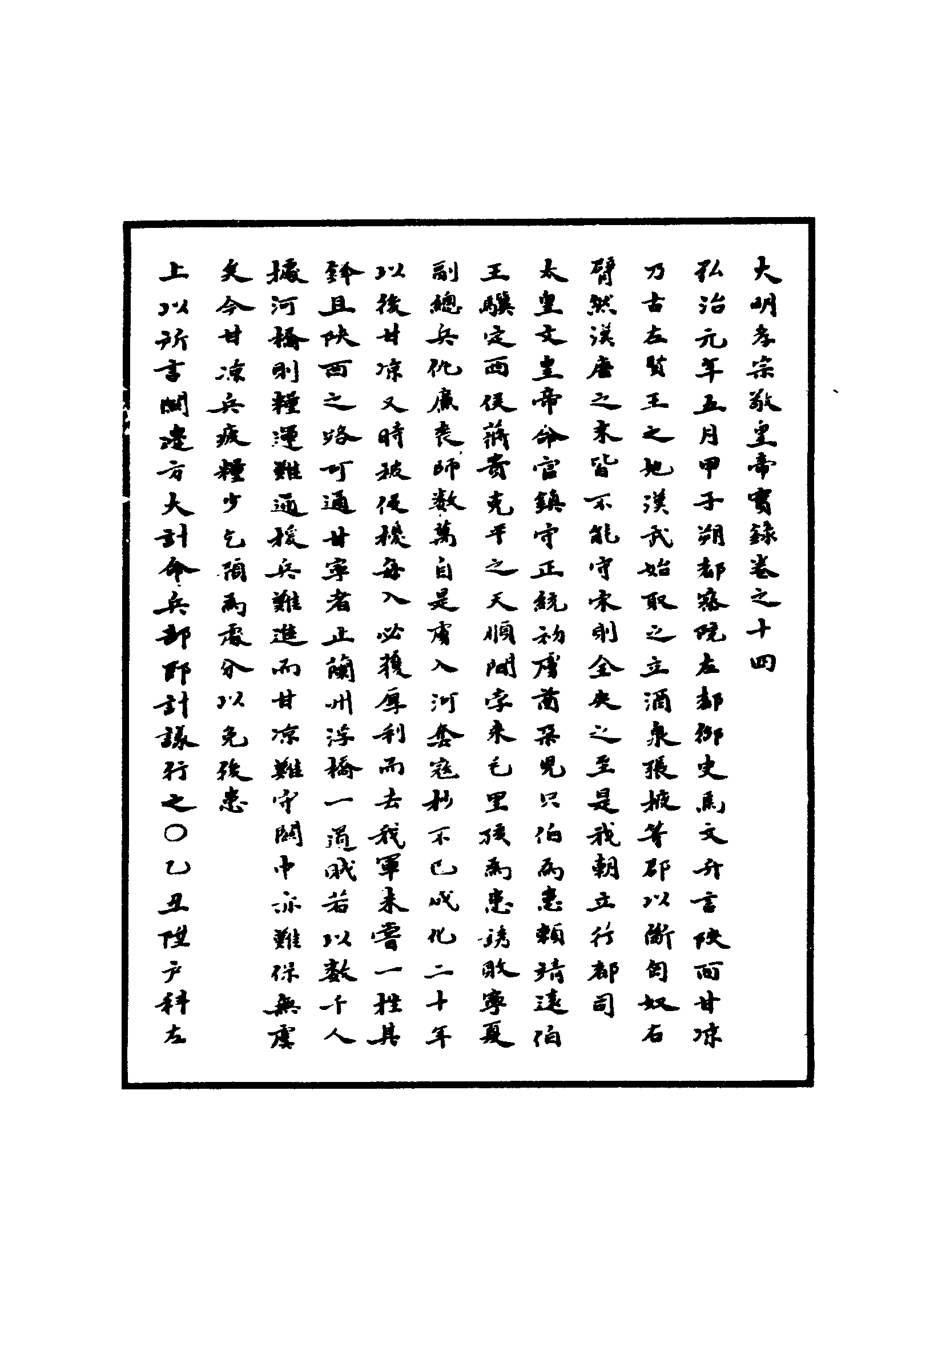 大明孝宗敬皇帝實錄卷之十四
弘治元年五月甲子朔都察院左都御史馬文升言陝西甘凉
乃古左賢王之地漢武始取之立酒泉張掖等郡以斷匈奴右
臂然漢唐之末皆不能守宋則全失之至是我朝立行都司
太皇文皇帝命官鎮守正統初虜酋朶兒只伯為患賴靖遠伯
王驥定西侯蔣貴克平之天順間孛来乇里孩為患誘敗寧夏
副總兵仇廉喪師數萬自是虜入河套寇抄不已成化二十年
以後甘凉又時被侵擾每入必獲厚利而去我軍未嘗一挫其
鋒且陝西之路可通甘寧者止蘭州浮橋一道戝若以數千人
據河橋則糧運難通援兵難進而甘凉難守關中亦難保無虞
矣今甘凉兵疲糧少乞預為處分以免後患
上以所言關邊方大計命兵部即計議行之〇乙丑陞户科左